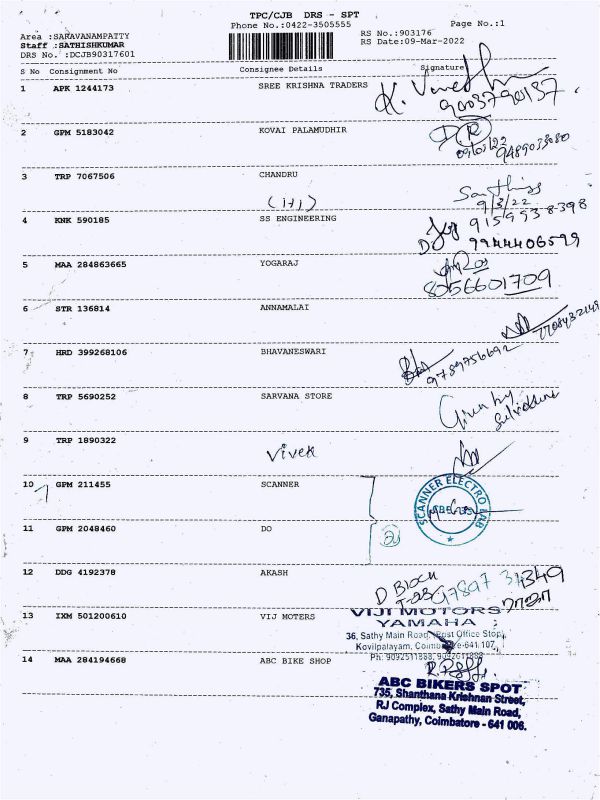 TPC/CJB DRS - SPT
Phone No.:0422-3505555
Page No.:1
Area :SARAVANAMPATTY
Staff :SATHISHKUMAR
DRS No. :DCJB90317601
RS No.:903176
RS Date:09-Mar-2022
S No Consignment No Consignee Details Signature
1 APK 1244173 SREE KRISHNA TRADERS
9003790137
2 GPM 5183042 KOVAI PALAMUDHIR
09/03/22
3 TRP 7067506 CHANDRU
9/3/22
(1+1)
4 KNK 590185 SS ENGINEERING
9159538398
9944406599
5 MAA 284863665 YOGARAJ
8056601709
6 STR 136814 ANNAMALAI
7 HRD 399268106 BHAVANESWARI
9789756692
8 TRP 5690252 SARVANA STORE
Given by
9 TRP 1890322 Vivek
10 GPM 211455 SCANNER
SCANNER ELECTRO LAB
11 GPM 2048460 DO
2
12 DDG 4192378 AKASH
D Block
13 IXM 501200610 VIJ MOTERS
VIJI MOTORS
YAMAHA
36, Sathy Main Road, (Post Office Stop),
Kovilpalayam, Coimbatore-641 107.
14 MAA 284194668 ABC BIKE SHOP
ABC BIKERS SPOT
735, Shanthana Krishnan Street,
RJ Complex, Sathy Main Road,
Ganapathy, Coimbatore - 641 006.